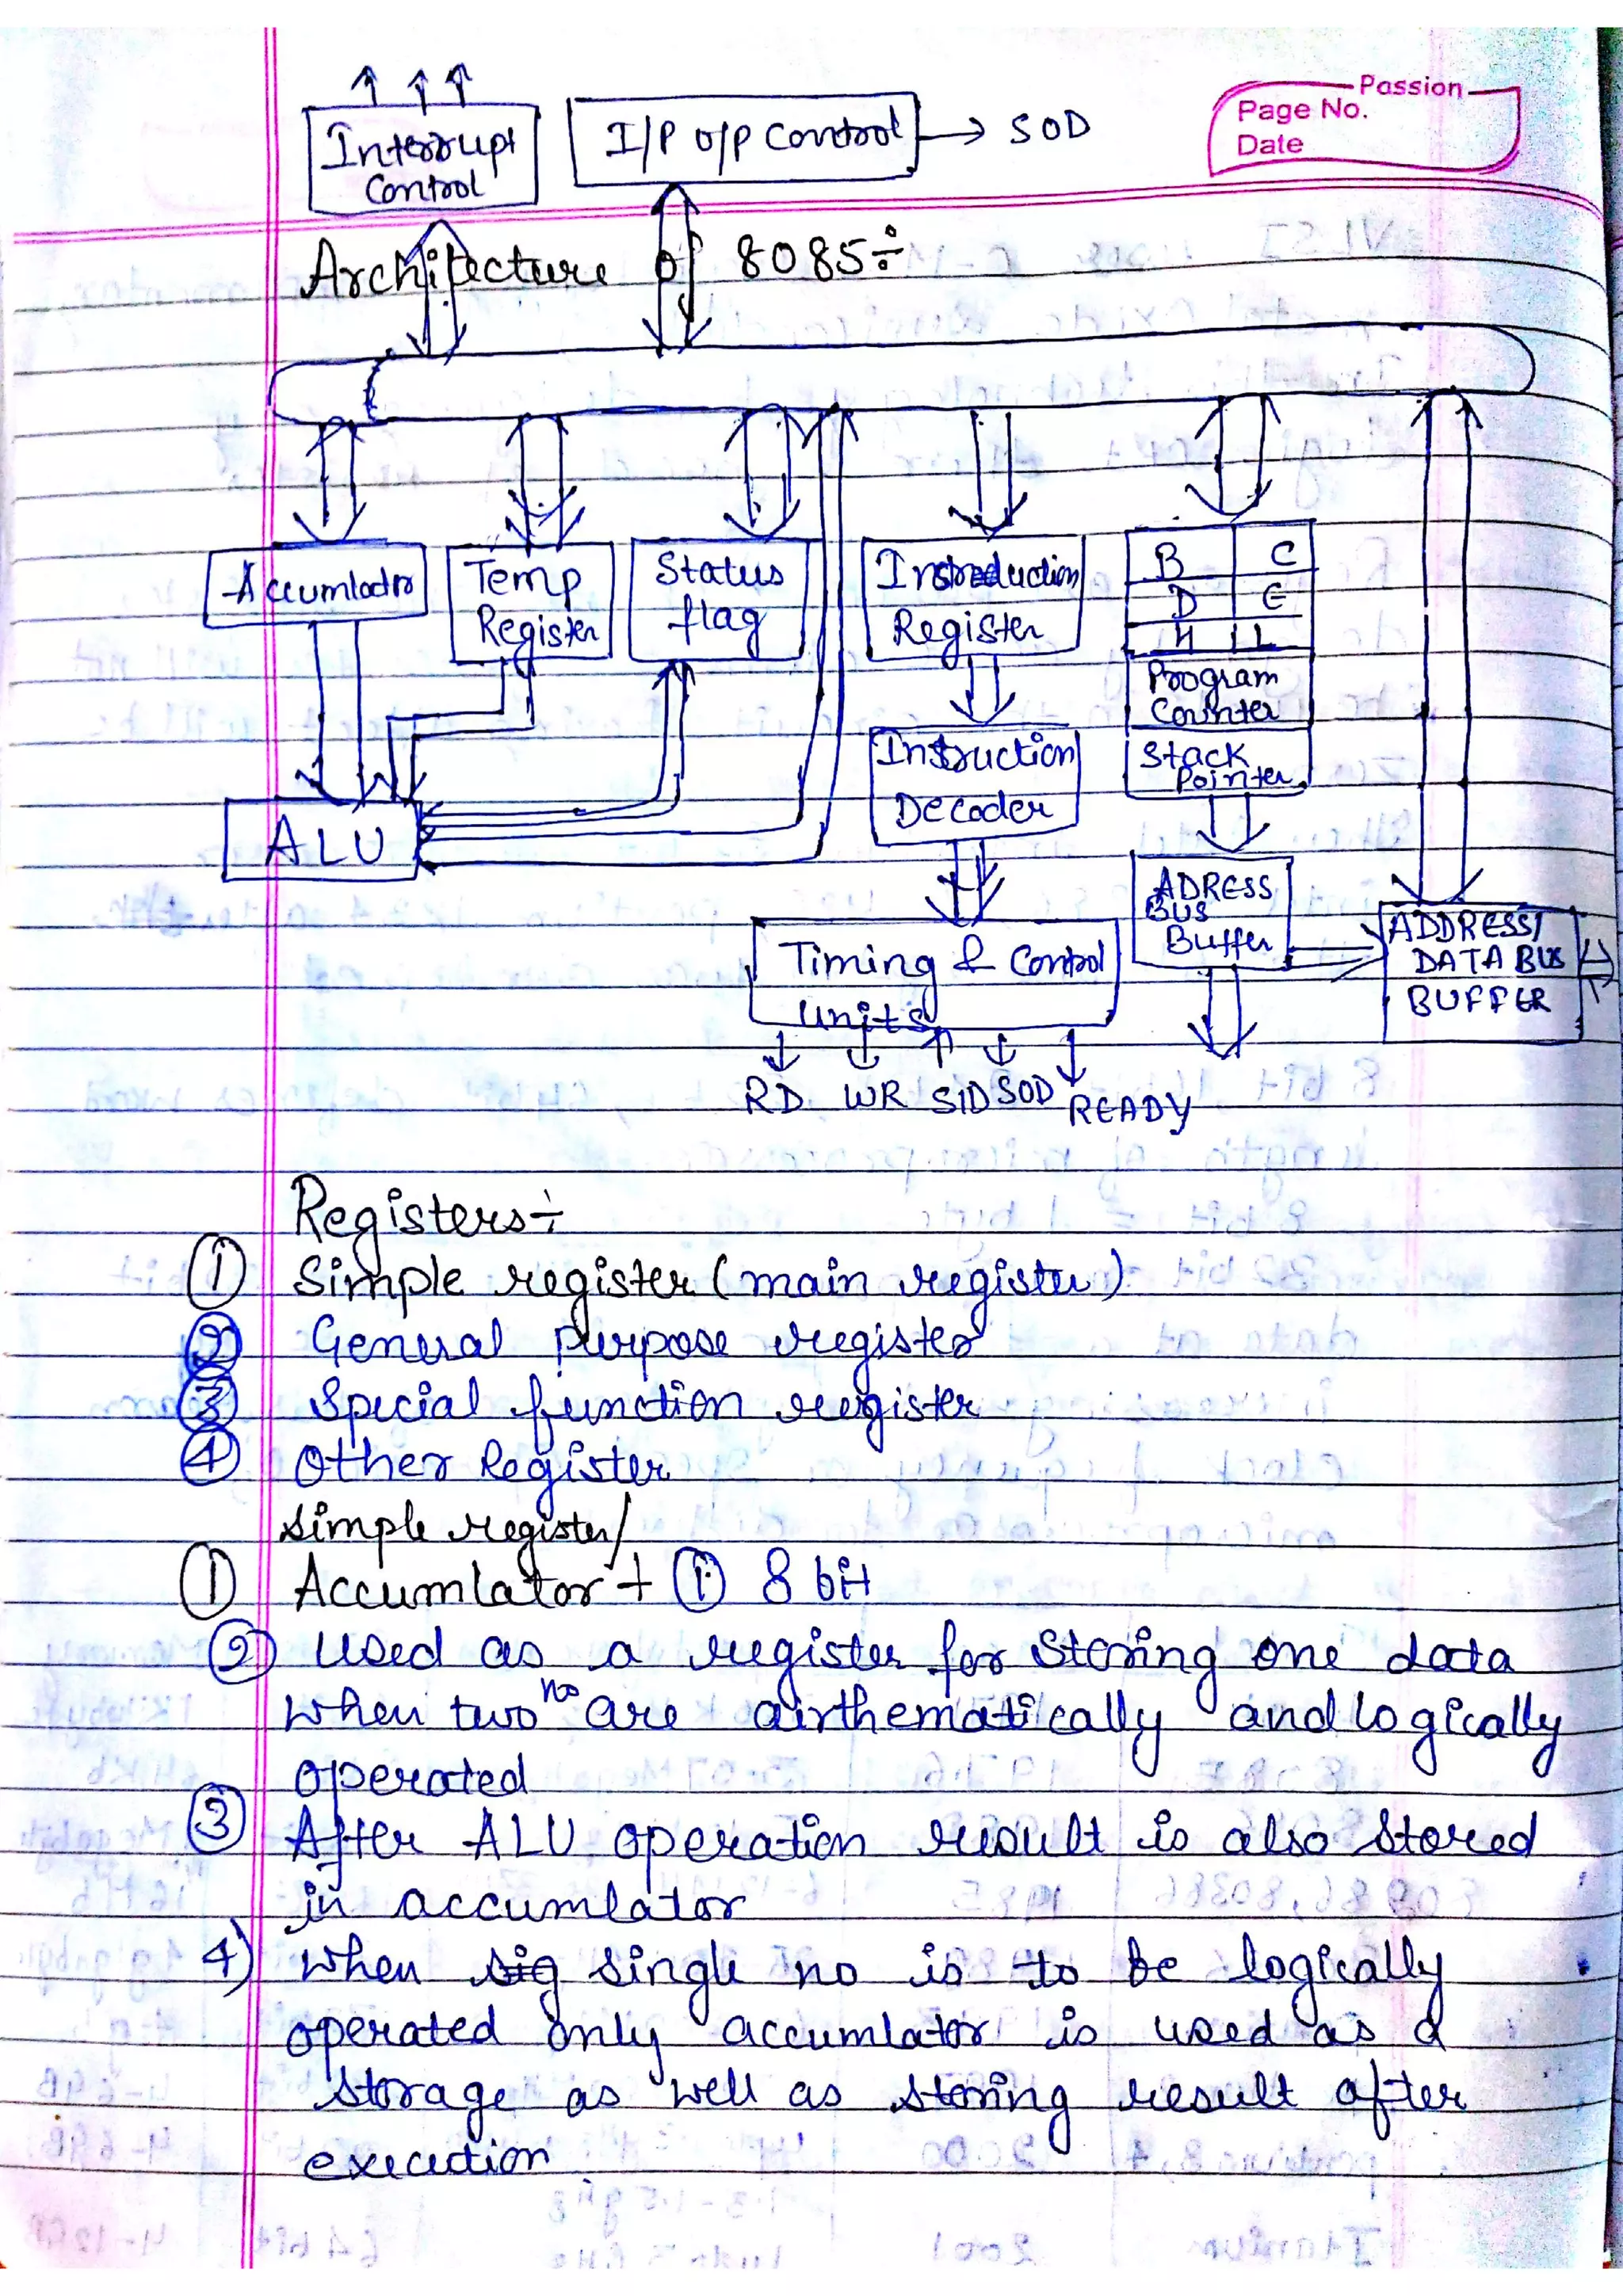 Passion
Page No.
Date
Interrupt
Control
I/P O/P Control → SOD
Architecture of 8085÷
Accumlator
Temp
Register
Status
flag
Instreduction
Register
B C
D E
H L
Program
Counter
Instruction
Decoder
Stack
Pointer
ALU
ADRESS
BUS
Buffer
ADDRESS/
DATA BUS
BUFFER
Timing & Control
Units
RD WR SID SOD READY
Registers÷
① Simple register (main register)
② General purpose register
③ Special function register
④ Other Register
Simple register/
① Accumlator÷ ① 8 bit
② Used as a register for storing one data
when two no are airthematically and logically
operated
③ After ALU operation result is also stored
in accumlator
4) when sig single no is to be logically
operated only accumlator is used as a
storage as well as storing result after
execution